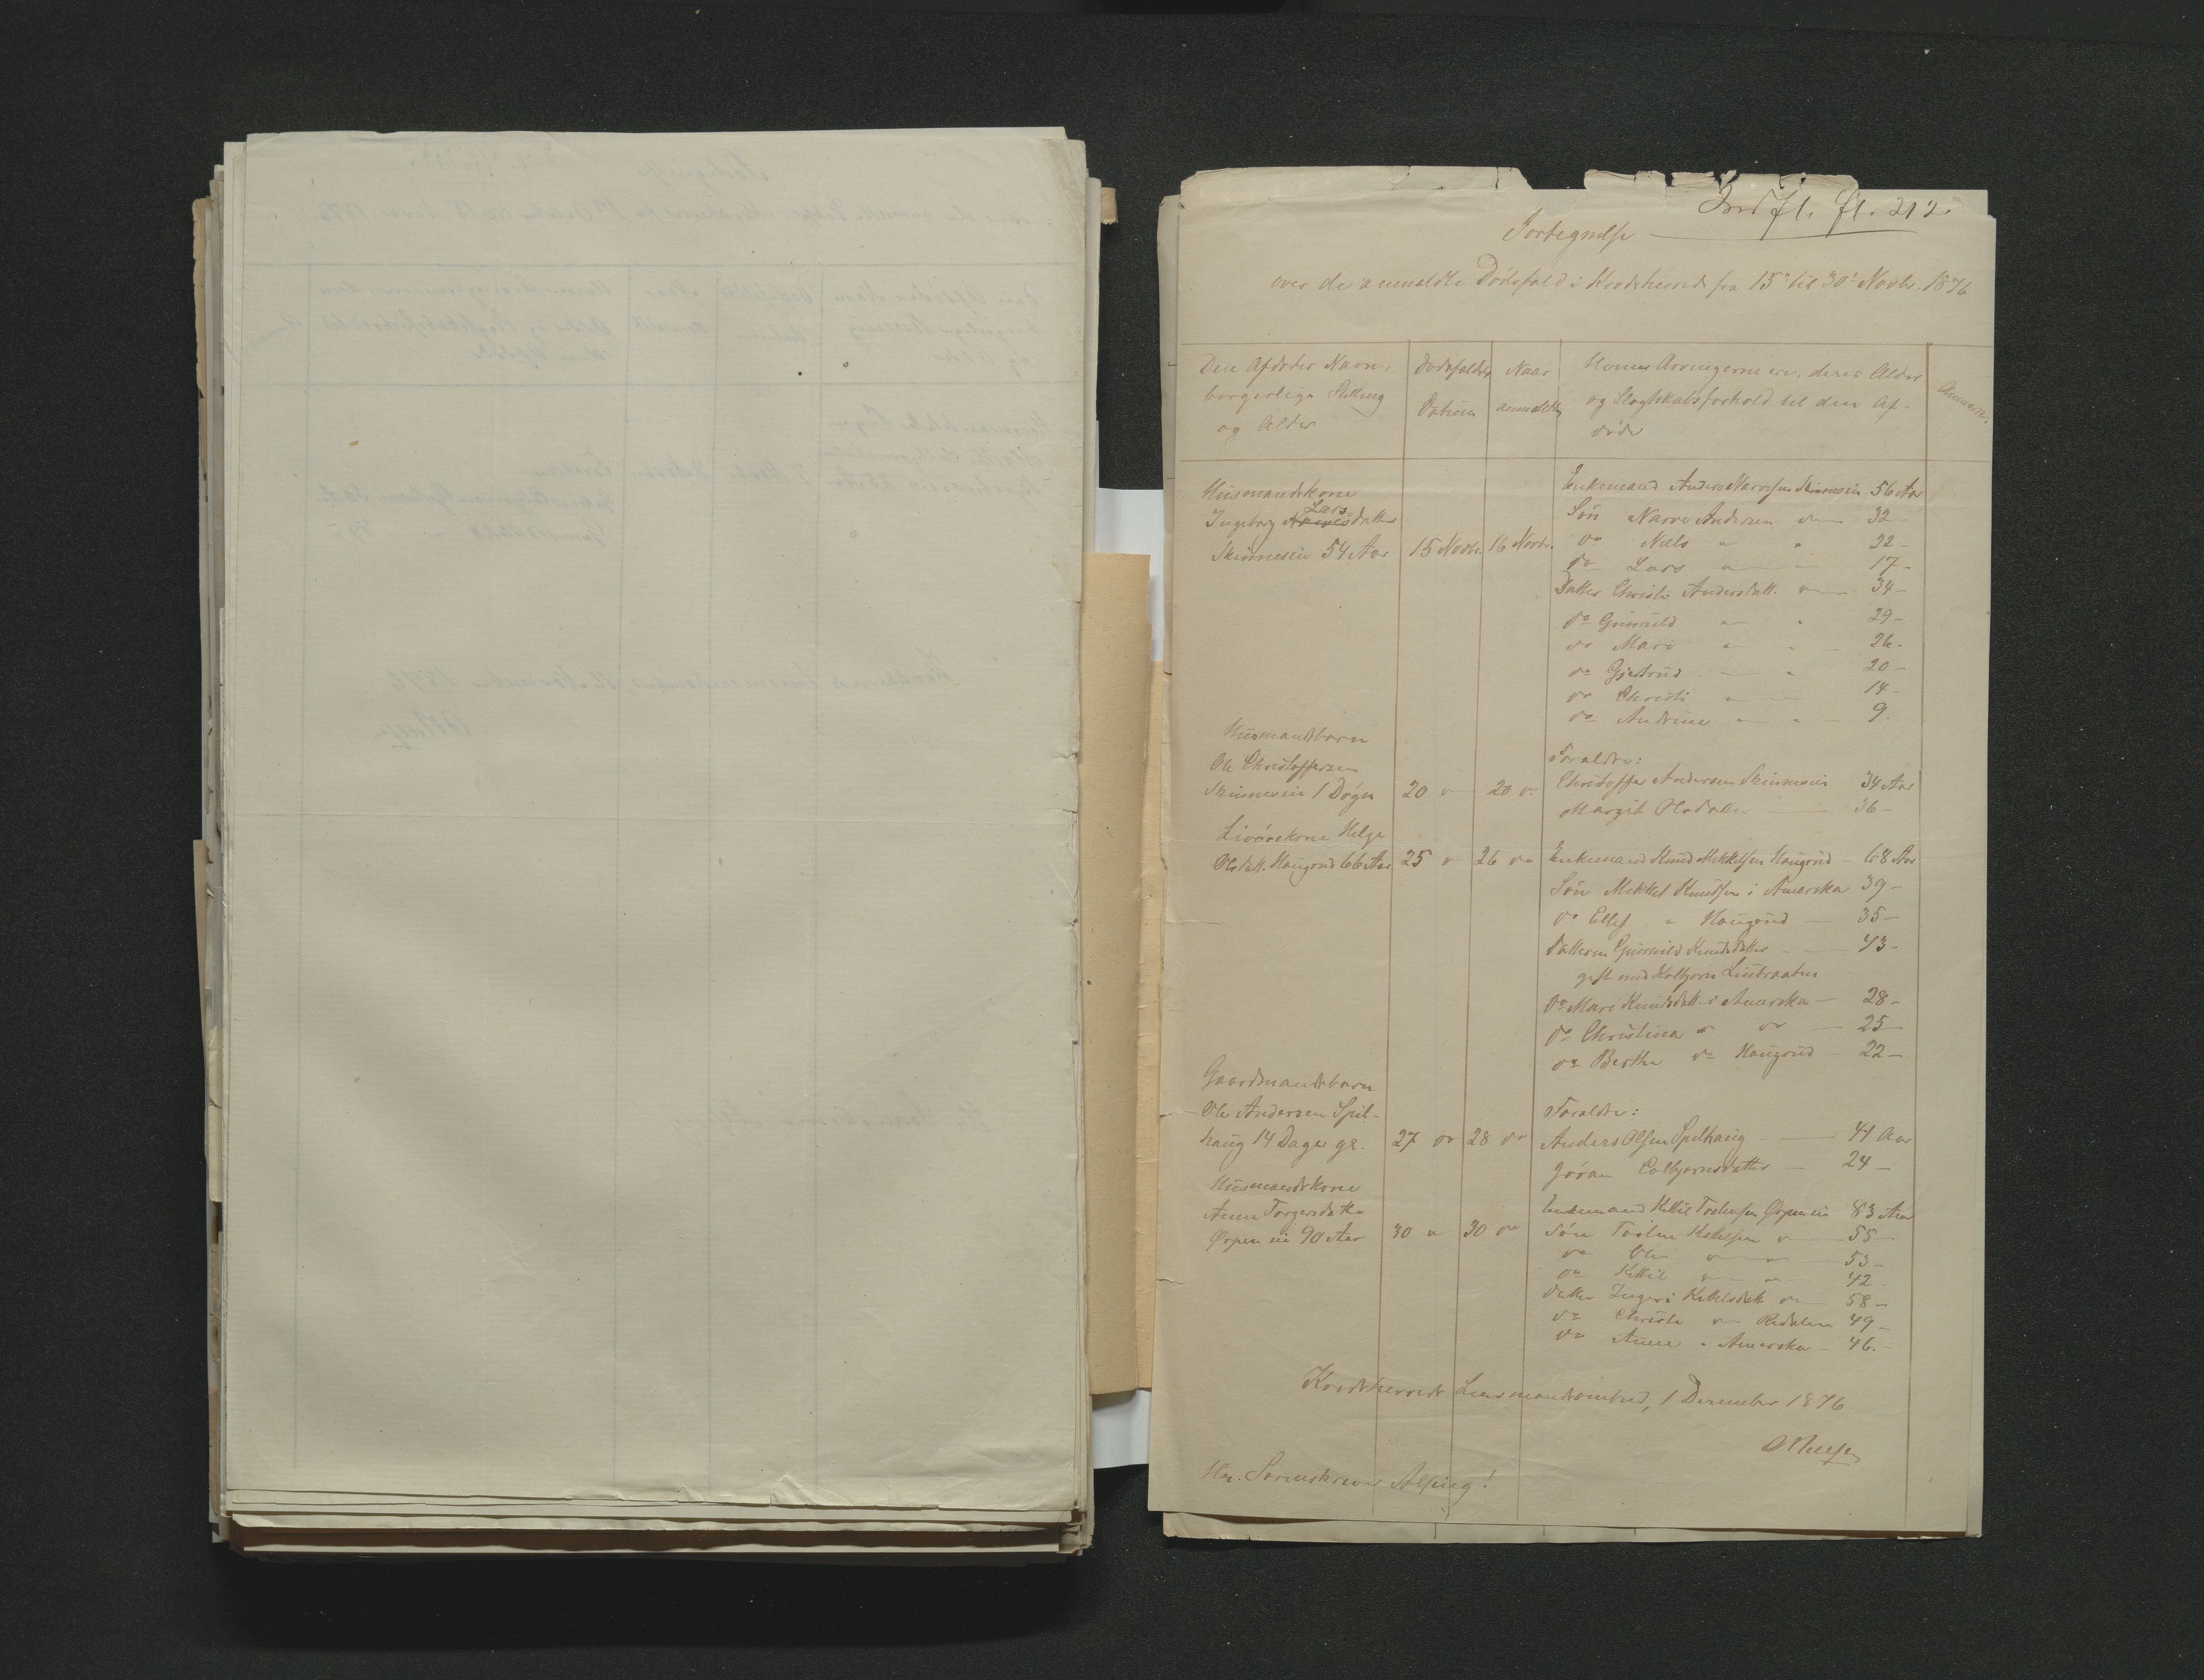 Indfl. fl. 212.
Fortegnelse
over de anmeldte Dødsfald i Krødsherred fra 15de til 30te Novbr. 1876
Den Afdødes Navn,
borgerlige Stilling
og Alder
Dødsfaldets
Datum
Naar
anmeldt
Hvem Arvingerne ere, deres Alder
og Slægtskabsforhold til den Af-
døde
Husmandskone
Lars
Ingeborg datter
Skinneseie 54 Aar
15 Novbr. 16 Novbr.
Enkemand Anders Narvesen Skinneseie 56 Aar
Søn Narve Andersen do 32 -
do Nils " " 22 -
do Lars " " 17 -
Datter Christi Andersdatt. do 34 -
do Gunnild " " 29 -
do Mari " " 26 -
do Gjertrud " " 20 -
do Christi " " 14 -
do Andrine " " 9.
Husmandsbarn
Ole Christoffersen
Skinneseie 1 Døgn
20 do 20 do
Forældre:
Christoffer Andersen Skinneseie 34 Aar
Margit Olsdatter 36 -
Livørekone Helge
Olsdatt. Haugrud 66 Aar
25 do 26 do
Enkemand Knud Mikkelsen Haugrud 68 Aar
Søn Mikkel Knudsen i Amerika 39 -
do Ellef " Haugrud 35 -
Datteren Gunnild Knudsdatter 43 -
gift med Kolbjørn Liubraaten
do Mari Knudsdatt. i Amerika 28 -
do Christina do do 25 -
do Berthe do Haugrud 22 -
Gaardmandsbarn
Ole Andersen Spil-
haug 14 Dage gl.
27 do 28 do
Forældre:
Anders Olsen Spilhaug 41 Aar
Jøran Colbjørnsdatter 24 -
Husmandskone
Anne Torgersdatter
Ørpen eie 90 Aar
30 do 30 do
Enkemand Kittil Tostensen Ørpeneie 83 Aar
Søn Kittilsen do 55 -
do Ole do do 53 -
do Kittil do do 42
Datter Ingeri Kittelsdatt. do 58 -
do Christi do 49 -
do Anne " Amerika 46. -
Krødsherreds Lensmandsombud, 1 December 1876
Hr. Sorenskriver !